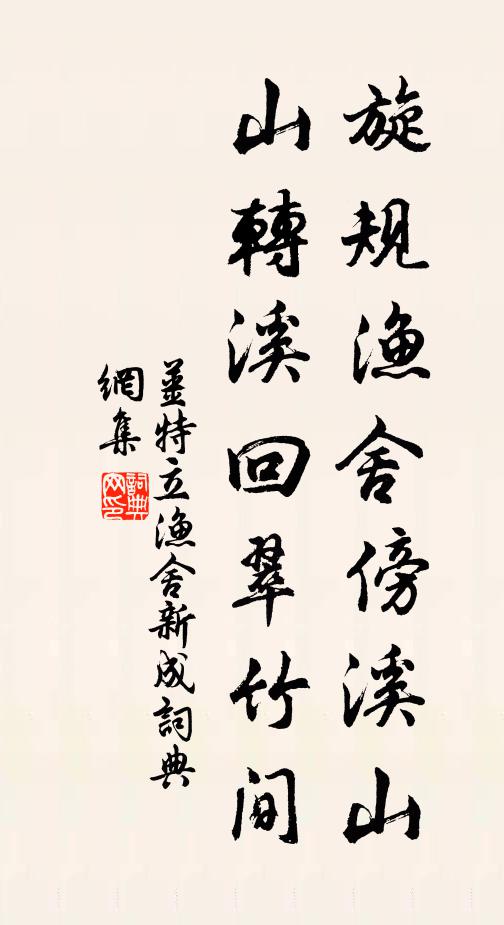 旋規漁舍傍溪山
山轉溪回翠竹間
姜特立漁舍新成詞典
網集
詞典
网印